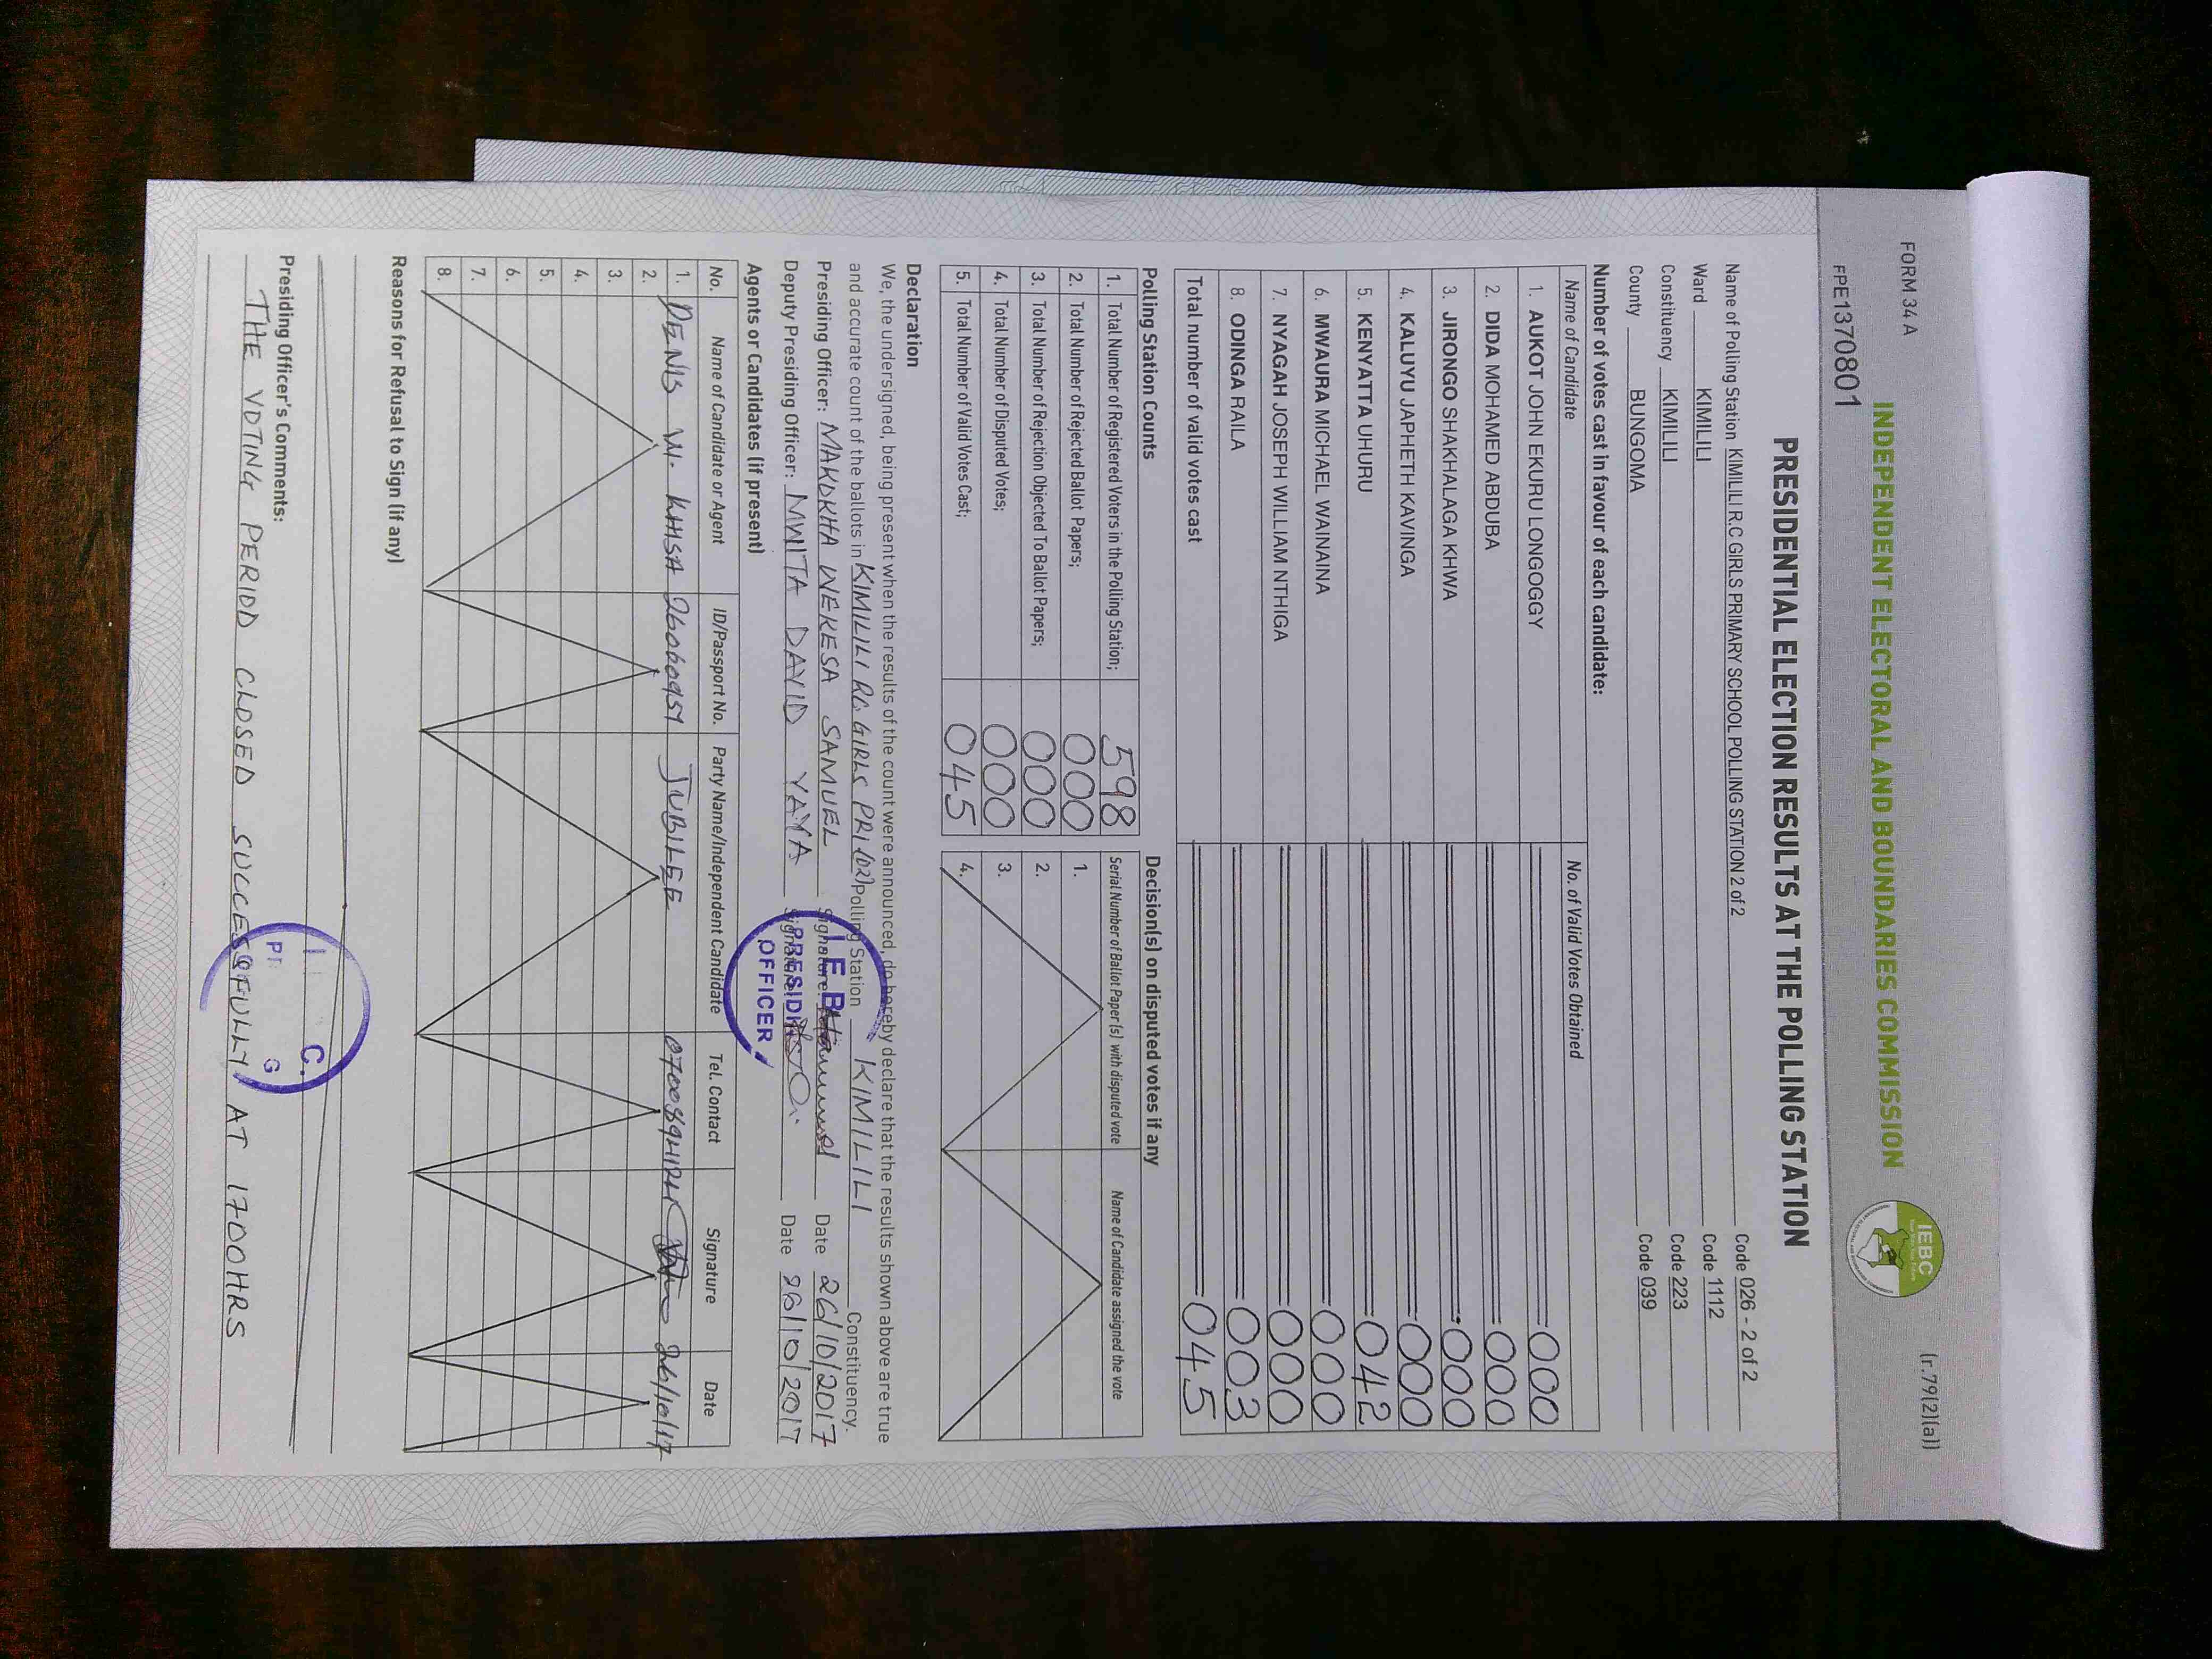 FORM 34 A
(r.79(2)(a))
INDEPENDENT ELECTORAL AND BOUNDARIES COMMISSION
IEBC
FPE1370801
PRESIDENTIAL ELECTION RESULTS AT THE POLLING STATION
Name of Polling Station KIMILILI R.C GIRLS PRIMARY SCHOOL POLLING STATION 2 of 2 Code 026 - 2 of 2
Ward KIMILILI Code 1112
Constituency KIMILILI Code 223
County BUNGOMA Code 039
Number of votes cast in favour of each candidate:
Name of Candidate No. of Valid Votes Obtained
1. AUKOT JOHN EKURU LONGOGGY 000
2. DIDA MOHAMED ABDUBA 000
3. JIRONGO SHAKHALAGA KHWA 000
4. KALUYU JAPHETH KAVINGA 000
5. KENYATTA UHURU 042
6. MWAURA MICHAEL WAINAINA 000
7. NYAGAH JOSEPH WILLIAM NTHIGA 000
8. ODINGA RAILA 003
Total number of valid votes cast 045
Polling Station Counts
1. Total Number of Registered Voters in the Polling Station; 598
2. Total Number of Rejected Ballot Papers; 000
3. Total Number of Rejection Objected To Ballot Papers; 000
4. Total Number of Disputed Votes; 000
5. Total Number of Valid Votes Cast; 045
Decision(s) on disputed votes if any
Serial Number of Ballot Paper (s) with disputed vote Name of Candidate assigned the vote
1.
2.
3.
4.
Declaration
We, the undersigned, being present when the results of the count were announced, do hereby declare that the results shown above are true
and accurate count of the ballots in KIMILILI RC GIRLS PRI (02) Polling Station KIMILILI Constituency.
Presiding Officer: MAKOKHA WEKESA SAMUEL Signature Date 26/10/2017
Deputy Presiding Officer: MWITA DAVID YAYA Signature Date 26/10/2017
PRESIDING
OFFICER
Agents or Candidates (if present)
No. Name of Candidate or Agent ID/Passport No. Party Name/Independent Candidate Tel. Contact Signature Date
1. DENIS W. KHISA JUBILEE 26/10/17
2.
3.
4.
5.
6.
7.
8.
Reasons for Refusal to Sign (if any)
Presiding Officer's Comments:
THE VOTING PERIOD CLOSED SUCCESSFULLY AT 1700HRS